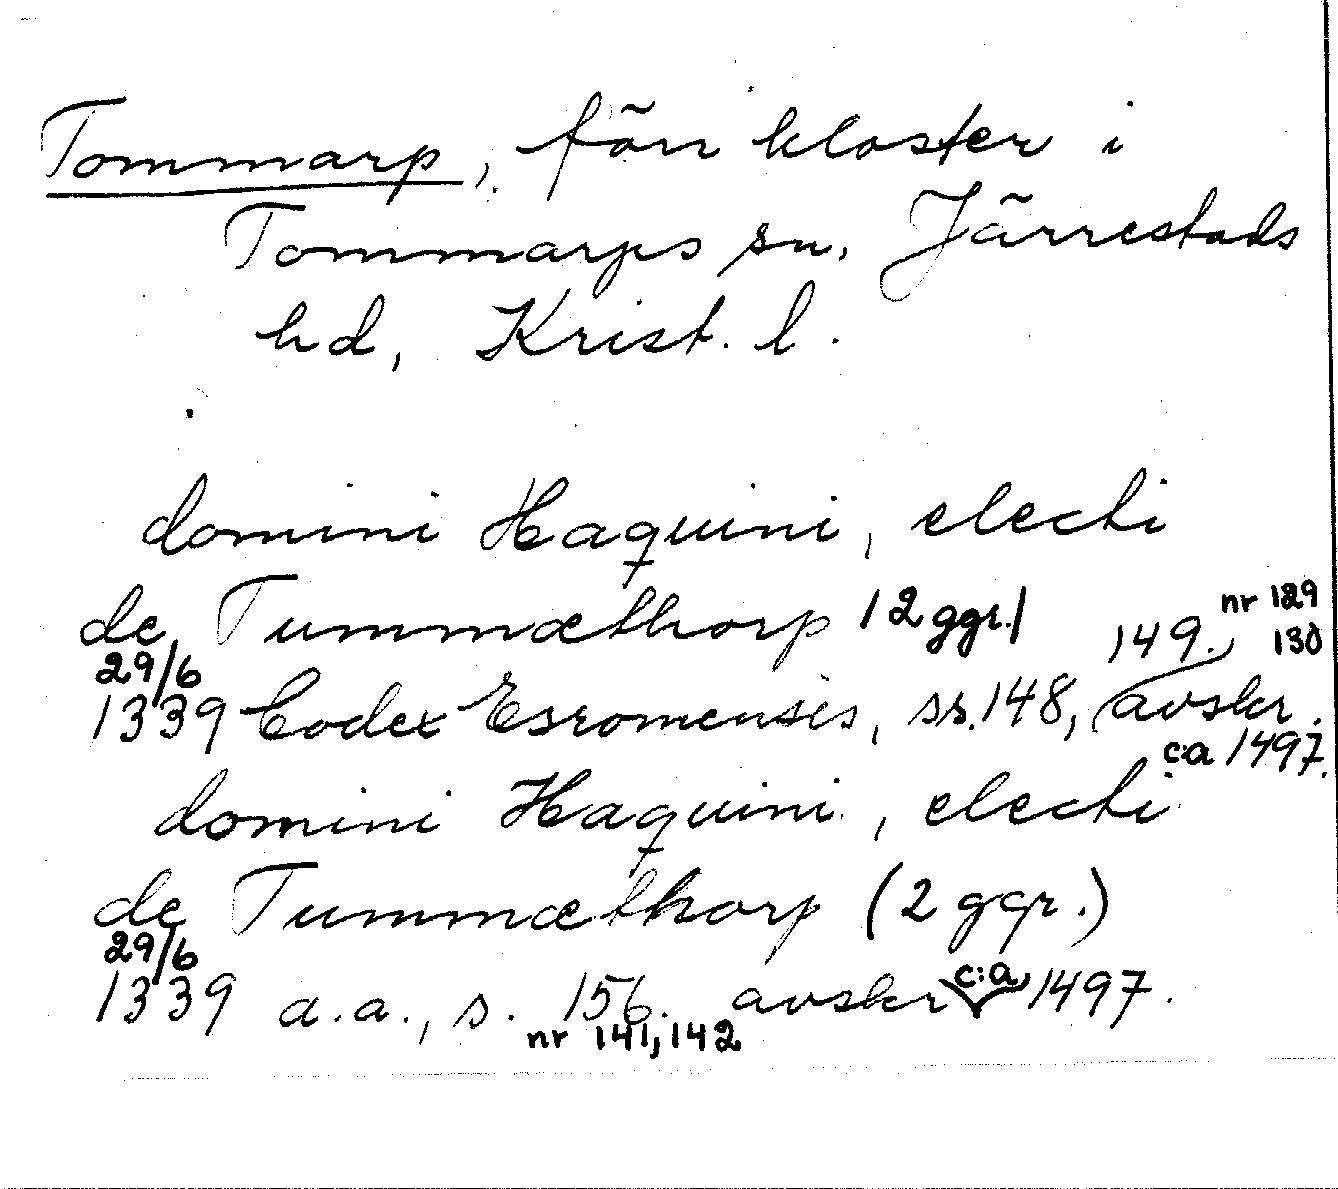 Tommarp, förr kloster i
Tommarps sn, Järrestads
hd, Krist. l.
domini Haquini, electi
de Tummæthorp /2 ggr./ nr 129
29/6 149. 130
1339 Codex Esromensis, ss. 148, avskr.
c:a 1497.
domini Haquini, electi
de Tummæthorp (2 ggr.)
29/6
1339 a.a., s. 156. avskr c:a 1497.
nr 141, 142